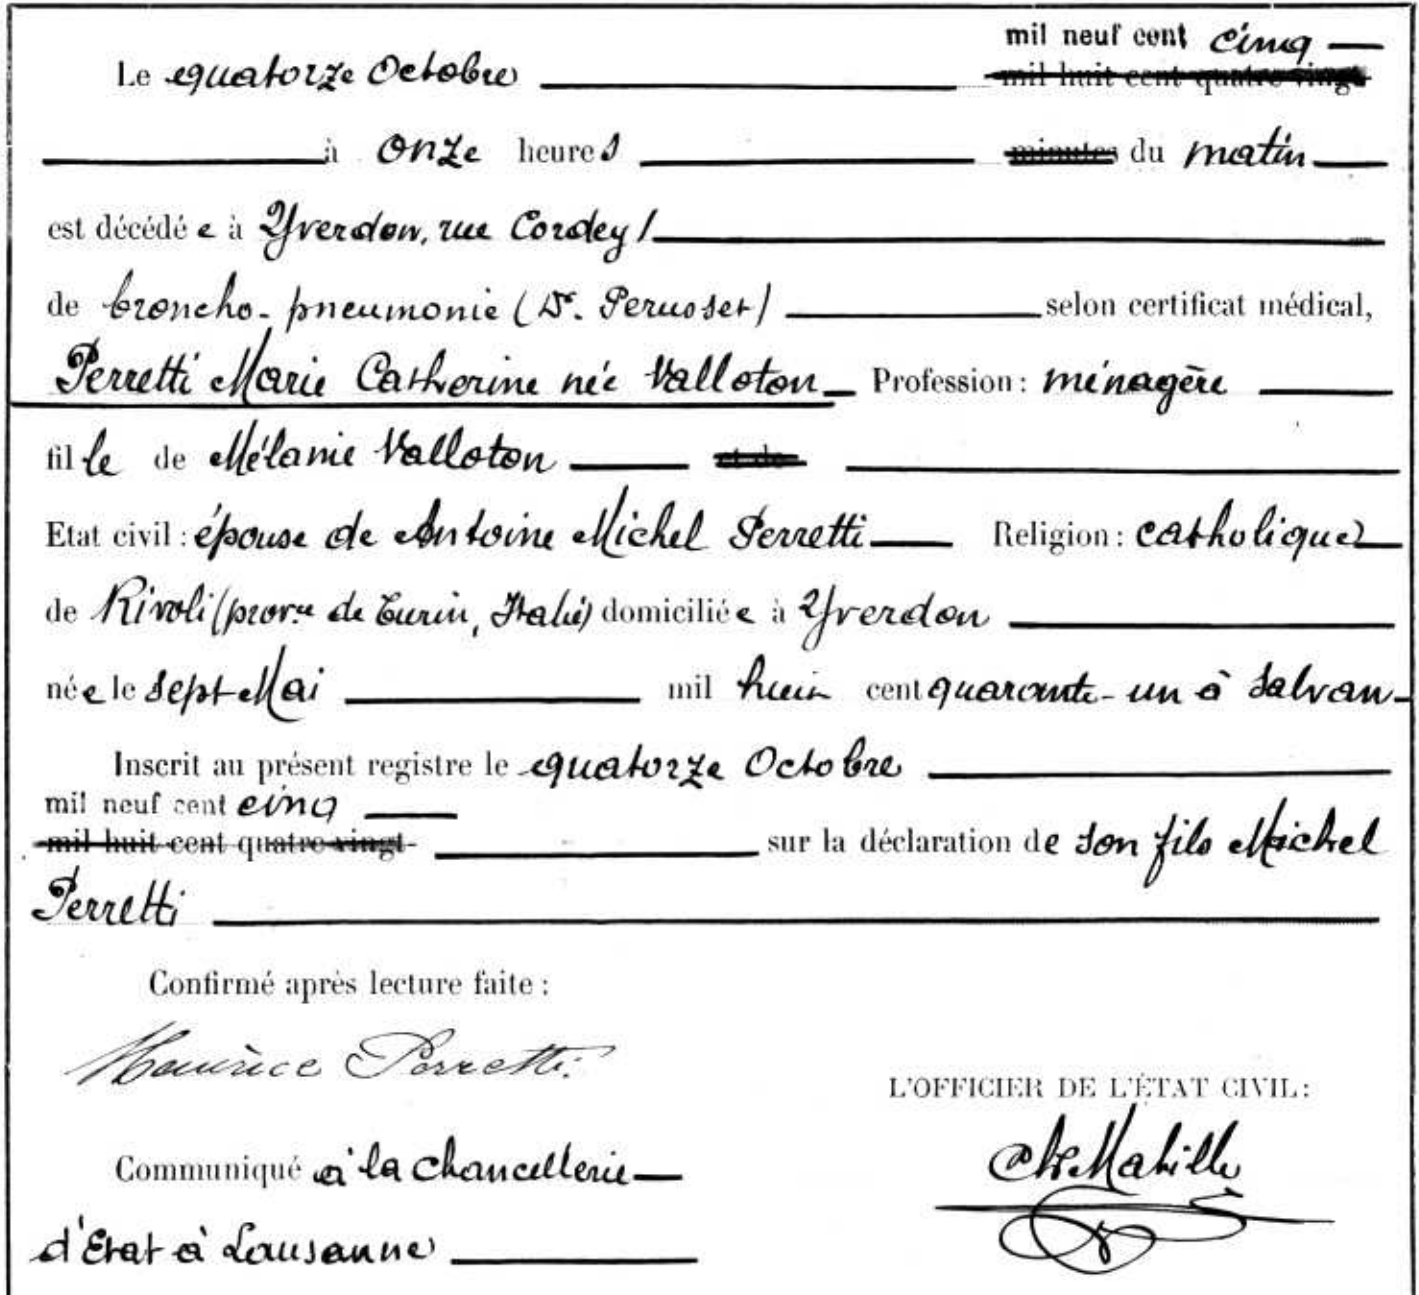 mil neuf cent cinq
Le quatorze Octobre mil huit cent quatre-vingt
à onze heures minutes du matin
est décédée à Yverdon, rue Cordey 1
de broncho-pneumonie (Dr. Perusset) selon certificat médical,
Perretti Marie Catherine née Valloton Profession: ménagère
fille de Mélanie Valloton et de
Etat civil: épouse de Antoine Michel Perretti Religion: catholique
de Rivoli (prov.ce de Turin, Italie) domiciliée à Yverdon
née le sept Mai mil huit cent quarante-un à Salvan
Inscrit au présent registre le quatorze Octobre
mil neuf cent cinq
mil huit cent quatre-vingt- sur la déclaration de son fils Michel
Perretti
Confirmé après lecture faite:
Maurice Perretti
L'OFFICIER DE L'ÉTAT CIVIL:
Communiqué à la Chancellerie
d'Etat à Lausanne